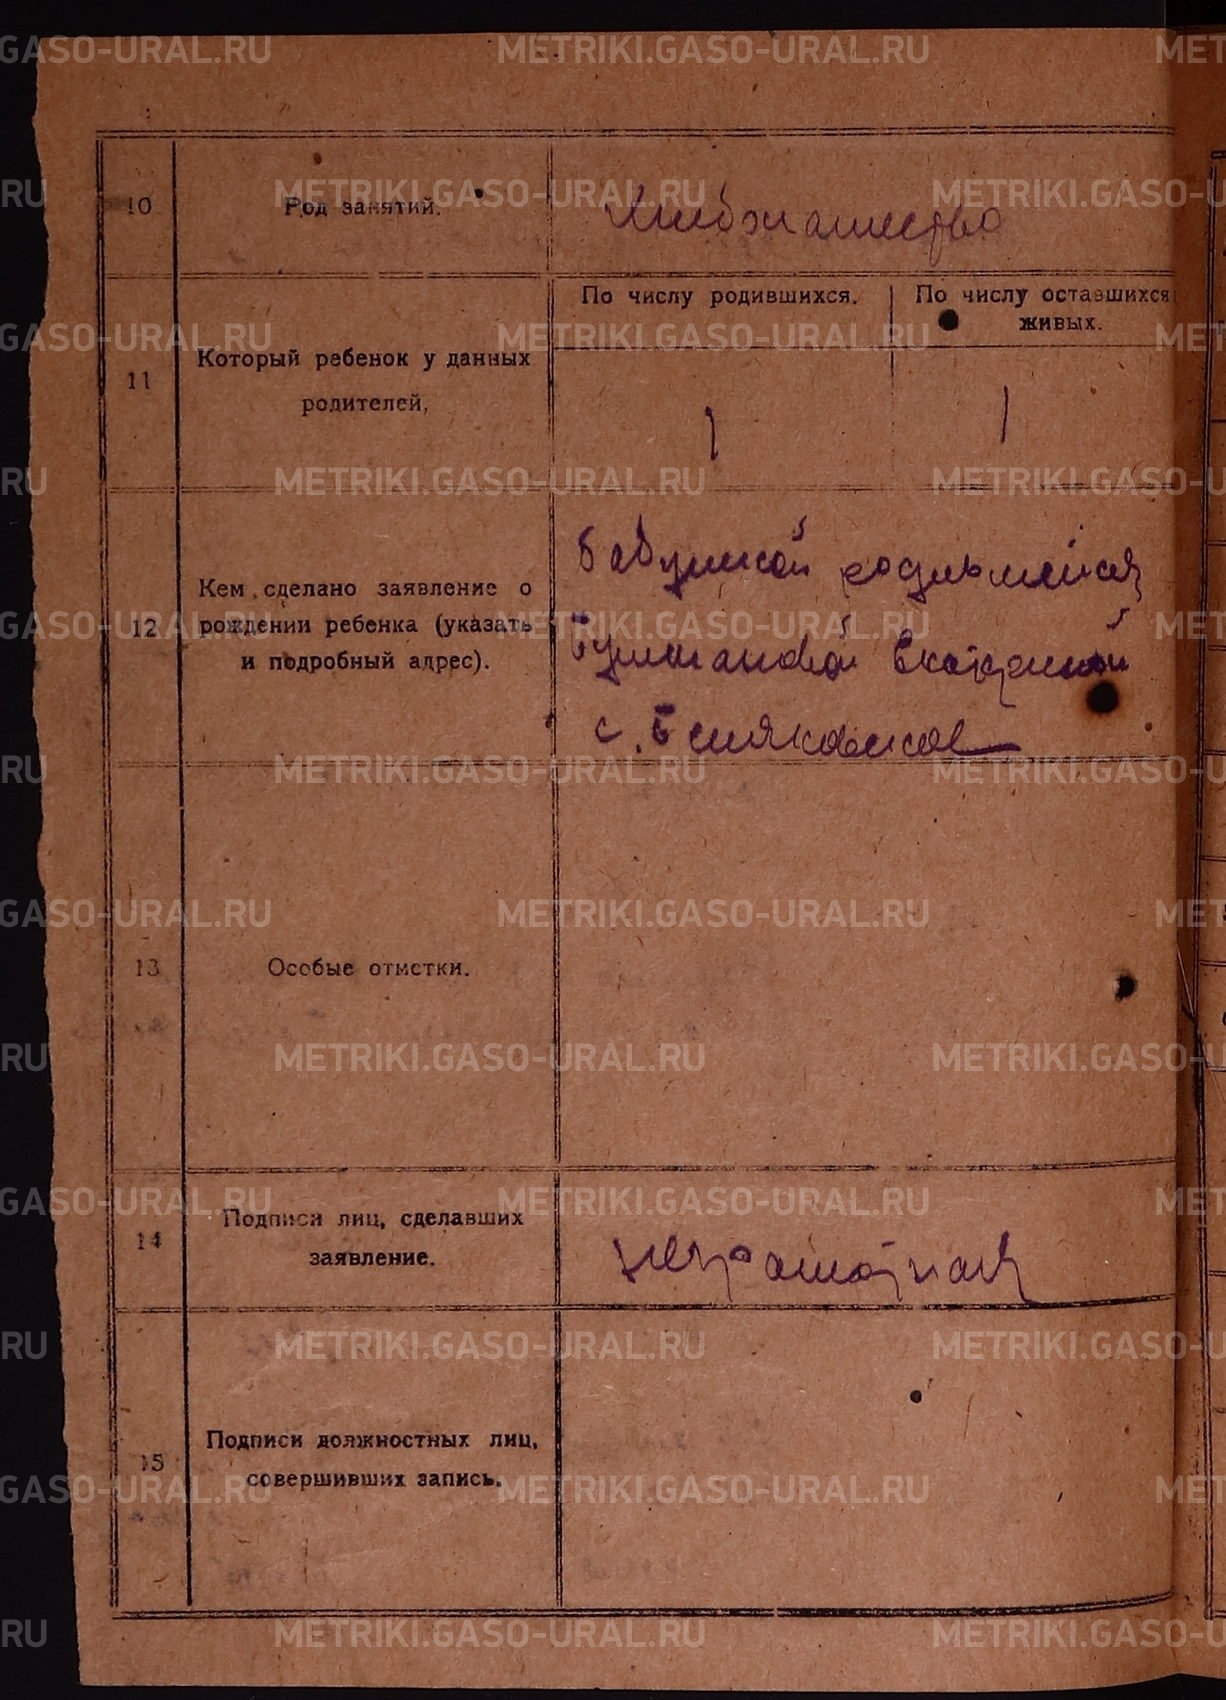 10
Род занятий.
Хлебопашество
11
Который ребенок у данных
родителей,
По числу родившихся.
По числу оставшихся
живых.
1
1
12
Кем сделано заявление о
рождении ребенка (указать
и подробный адрес).
бабушкой родившейся
Екатериной
с.
13
Особые отметки.
14
Подписи лиц, сделавших
заявление.
неграмотная
15
Подписи должностных лиц,
совершивших запись.
METRIKI.GASO-URAL.RU